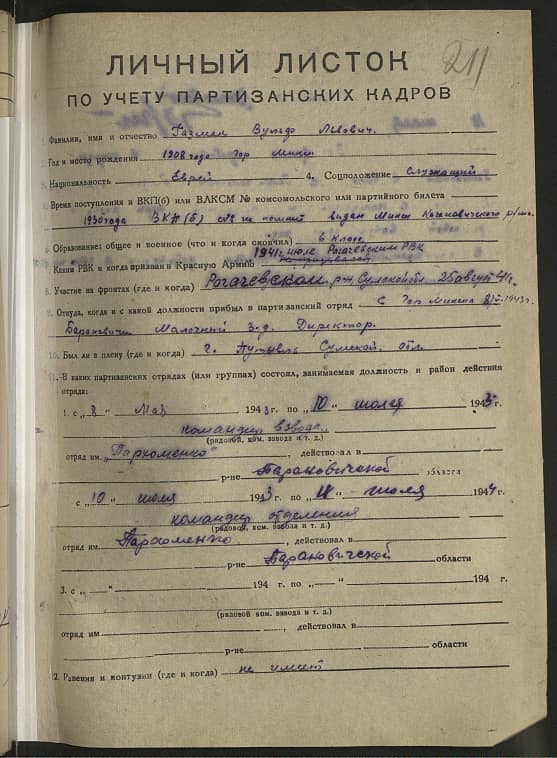 211
ЛИЧНЫЙ ЛИСТОК
ПО УЧЕТУ ПАРТИЗАНСКИХ КАДРОВ
Фамилия, имя и отчество Вульф Львович.
Год и место рождения 1908 года Гор Минск
Национальность Еврей 4. Соцположение Служащий
Время поступления в ВКП(б) или ВЛКСМ № комсомольского или партийного билета
1930 года ВКП(б) № не помнит выдан Минск Кагановичского
6 Образование: общее и военное (что и когда окончил) 6 клас
Каким РВК и когда призван в Красную Армию 1941 июле Рогачевским РВК
8 Участие на фронтах (где и когда) Рогачевском 25 август 41г.
9 Откуда, когда и с какой должности прибыл в партизанский отряд с Гор Минска 1943г.
Барановичи Молочный з-д. Директор.
10. Был ли в плену (где и когда) г. Путивль Сумской. обл.
11. В каких партизанских отрядах (или группах) состоял, занимаемая должность и район действия
отряда:
1. с „8" Мая 1943 г. по „10" июля 1943 г.
командир взвода
(рядовой, ком. завода и т. д.)
отряд им. „Пархоменко", действовал в
р-не Барановичской области
с „10" июля 1943 г. по „ " июля 1944 г.
командир отделения
(рядовой, ком. взвода и т. д.)
отряд им. Пархоменко, действовал в
р-не Барановичской области
3. с „ " 194 г. по „ " 194 г.
(рядовой ком. взвода и т. д.)
отряд им , действовал в
р-не области
2. Ранения и контузии (где и когда) не имеет